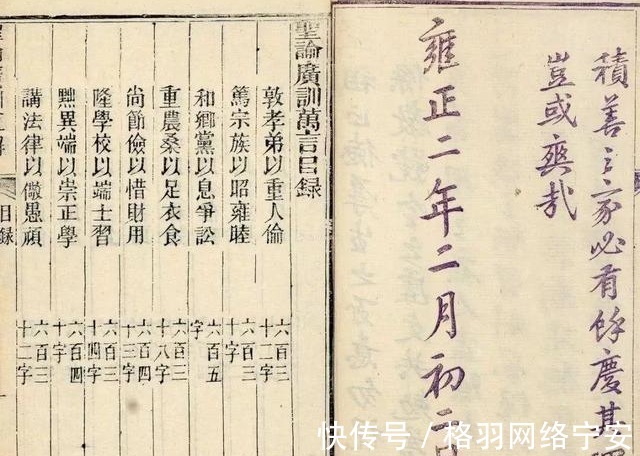 積善之家必有餘慶其
豈或爽哉
雍正二年二月初二日
聖諭廣訓萬言目錄
敦孝弟以重人倫 六百三十二字
篤宗族以昭雍睦 六百三十字
和鄉黨以息爭訟 六百五字
重農桑以足衣食 六百三十八字
尚節儉以惜財用 六百四十三字
隆學校以端士習 六百三十四字
黜異端以崇正學 六百四十字
講法律以儆愚頑 六百三十二字
目錄
快传号／格羽网络宁安